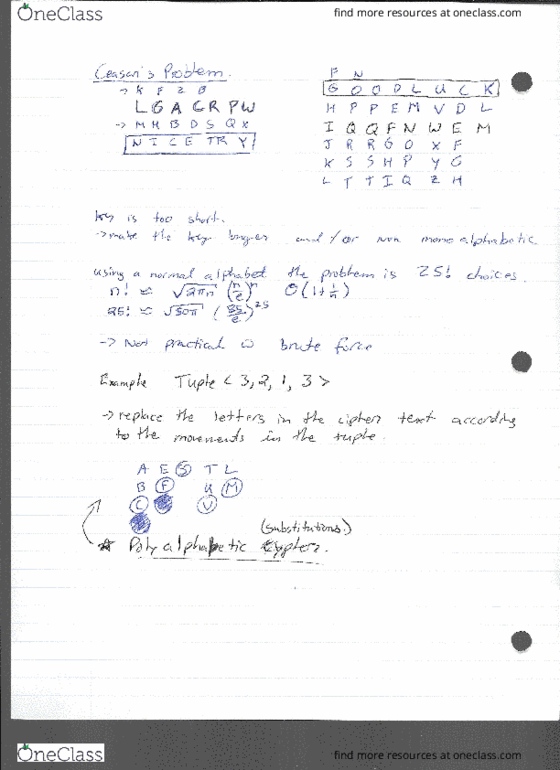 OneClass
find more resources at oneclass.com
Ceasar's Problem.
→ K F Z B
L G A C R P W
→ M H B D S Q X
N I C E T R Y
F N
G O O D L U C K
H P P E M V D L
I Q Q F N W E M
J R R G O X F
K S S H P Y G
L T T I Q Z H
key is too short.
→ make the key longer and/or non monoalphabetic.
using a normal alphabet the problem is 25! choices.
n! ≈ √2πn (n/e)^n O(1+1/n)
25! ≈ √50π (25/e)^25
→ Not practical to brute force
Example Tuple < 3, 2, 1, 3 >
→ replace the letters in the cipher text according
to the movements in the tuple.
A E S T L
B F U M
C V
(substitutions.)
Polyalphabetic Cypher.
OneClass
find more resources at oneclass.com